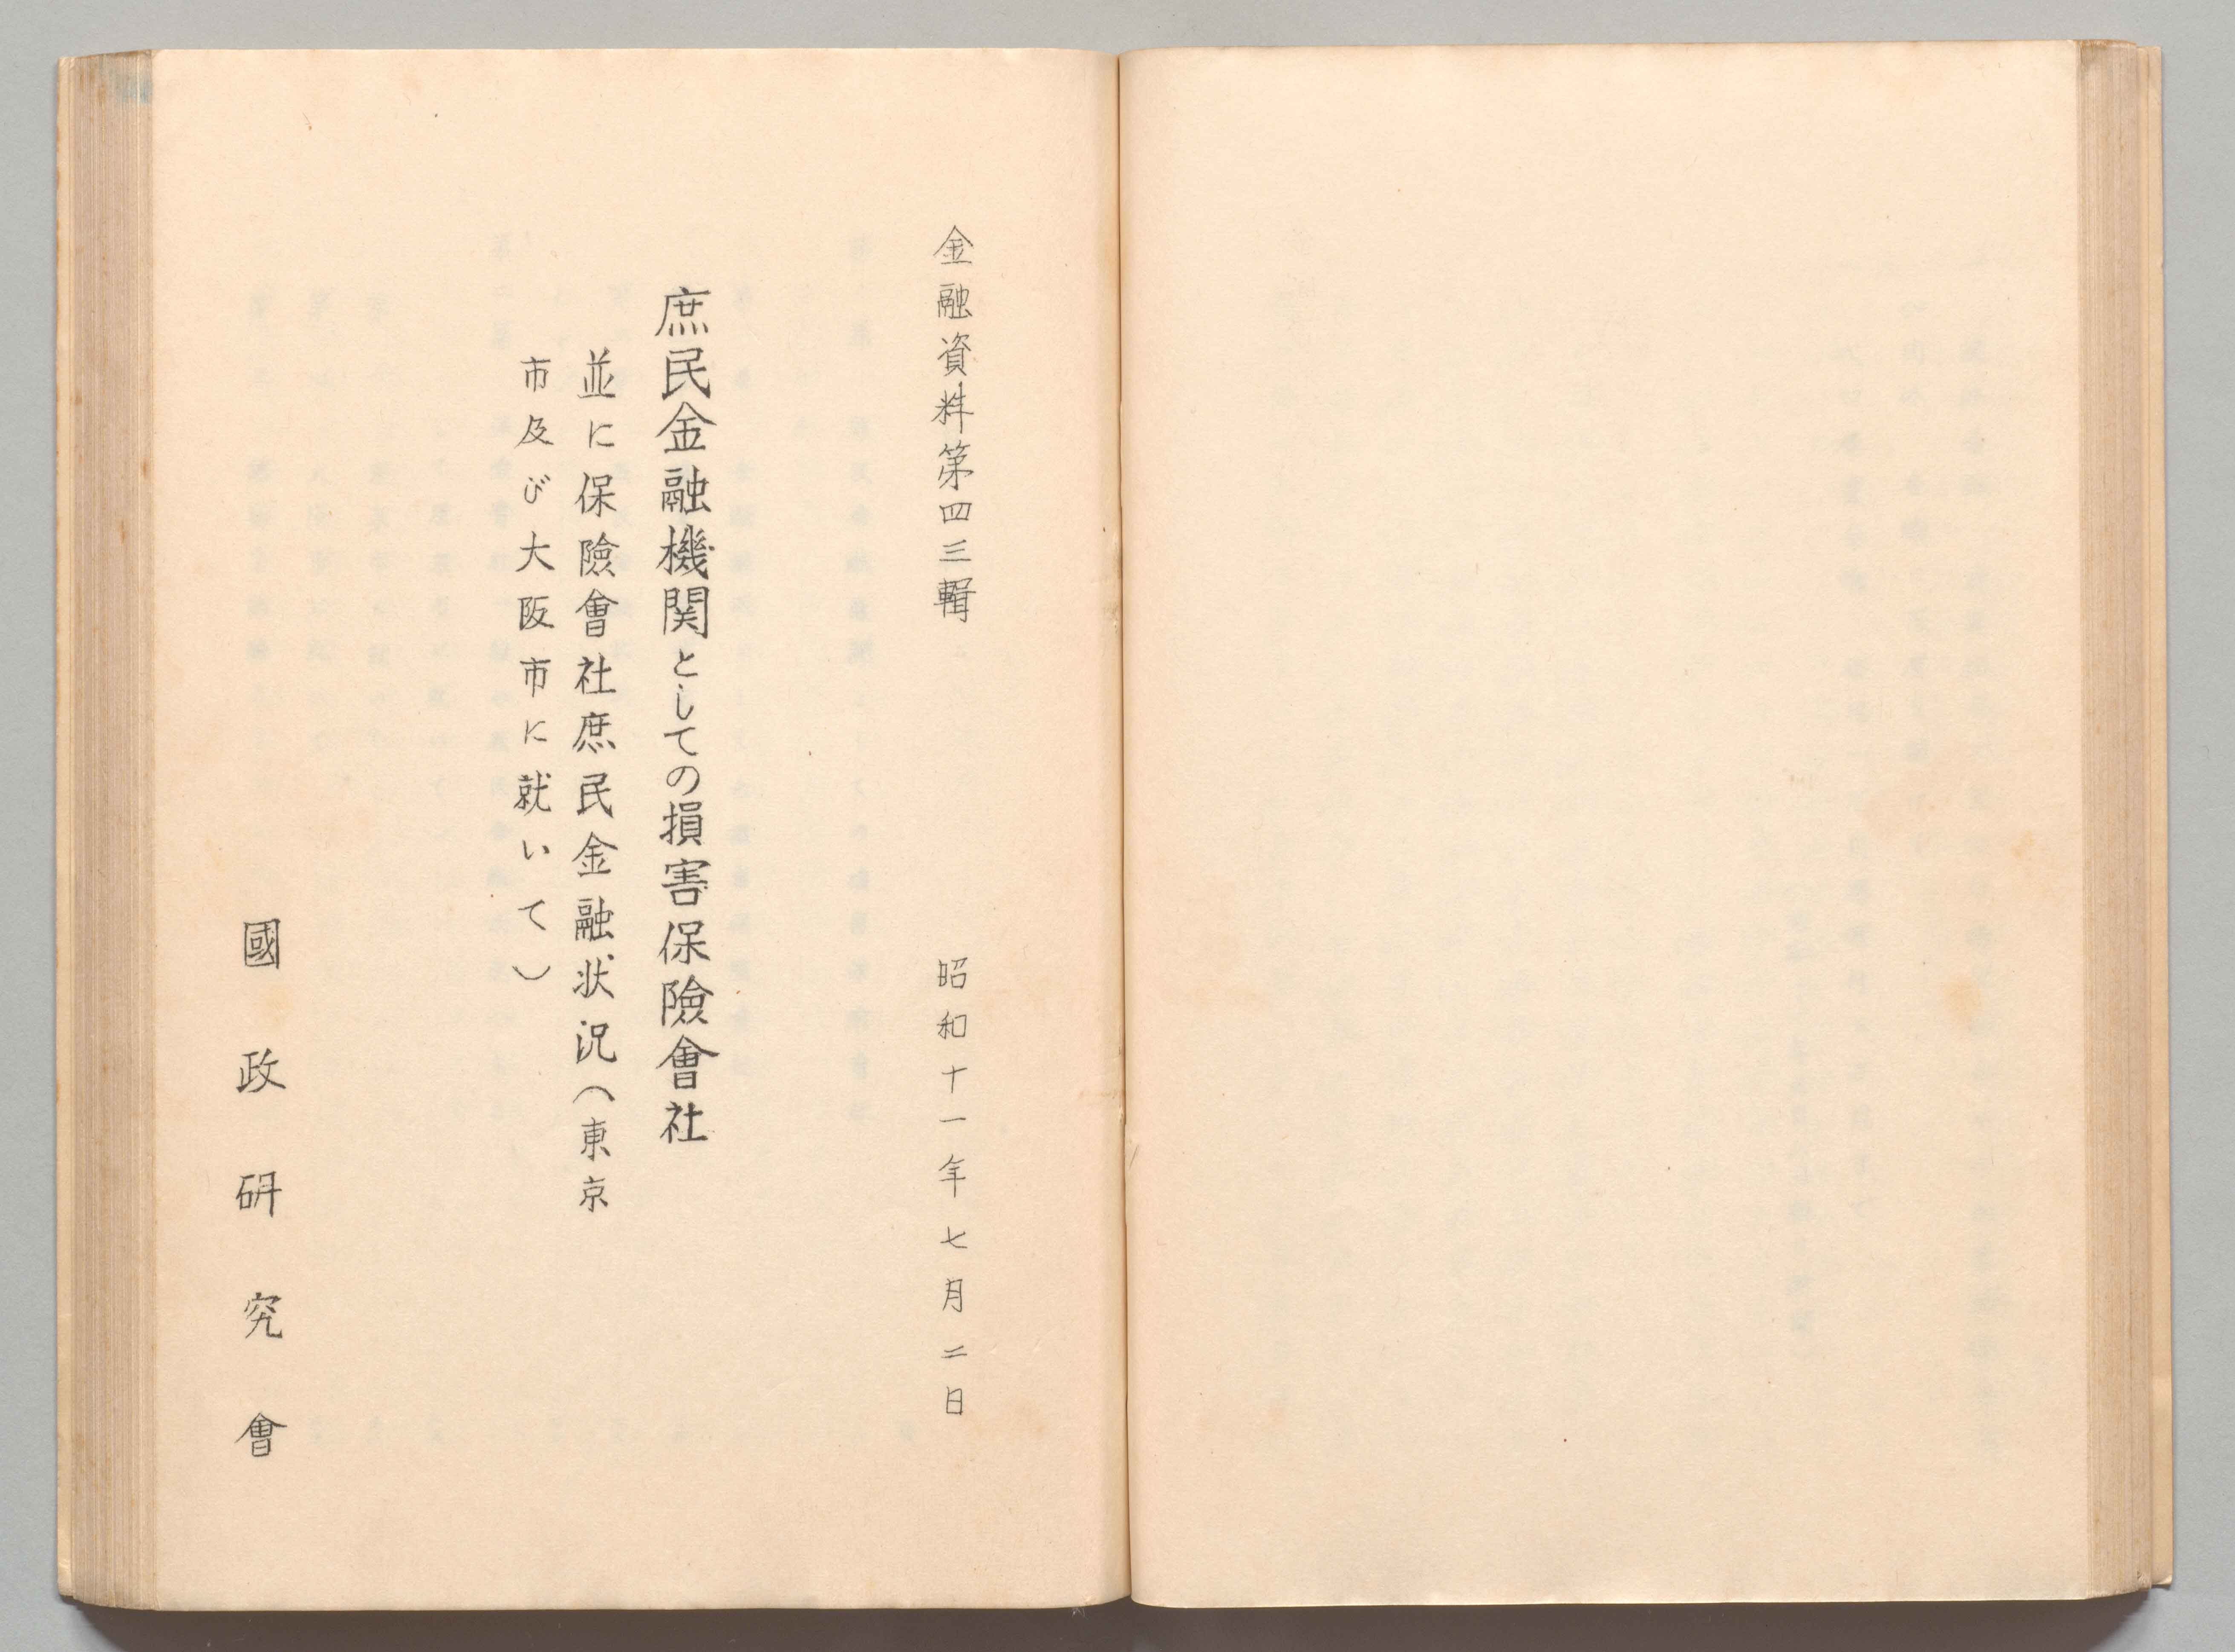 金融資料第四三輯
昭和十一年七月二日
庶民金融機関としての損害保險會社
並に保險會社庶民金融状況（東京
市及び大阪市に就いて）
國政研究會